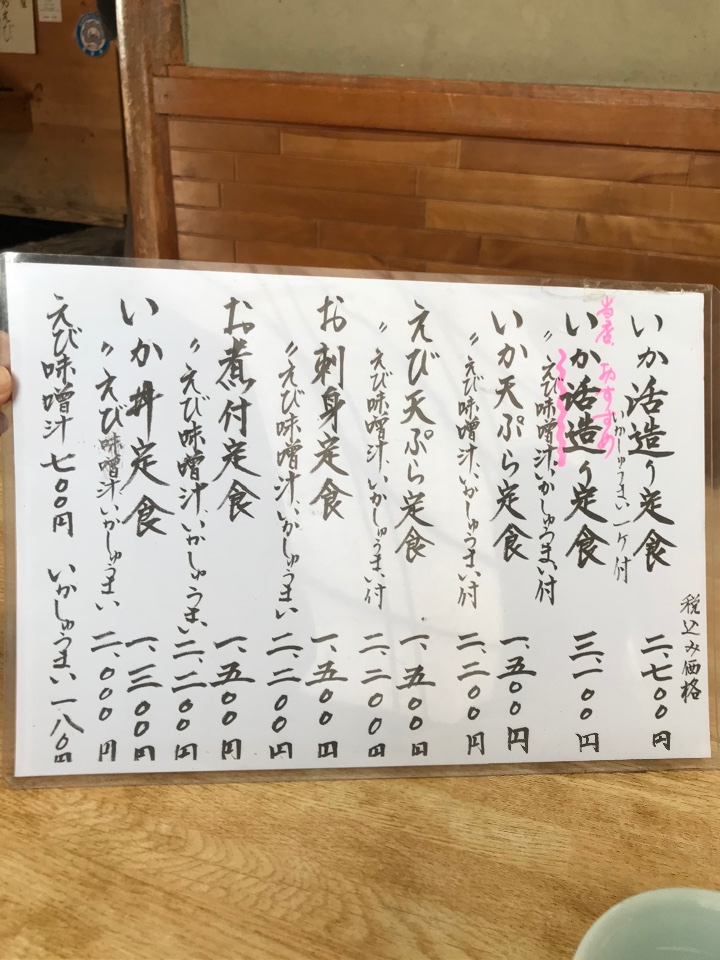 税込み価格
いか活造り定食 二、七〇〇円
いかしゅうまい一ヶ付
当店おすすめ
いか活造り定食 三、一〇〇円
〃えび味噌汁、いかしゅうまい付
いか天ぷら定食 一、五〇〇円
〃えび味噌汁、いかしゅうまい付 二、二〇〇円
えび天ぷら定食 一、五〇〇円
〃えび味噌汁、いかしゅうまい付 二、二〇〇円
お刺身定食 一、五〇〇円
〃えび味噌汁、いかしゅうまい 二、二〇〇円
お煮付定食 一、五〇〇円
〃えび味噌汁、いかしゅうまい 二、二〇〇円
いか丼定食 一、三〇〇円
〃えび味噌汁、いかしゅうまい 二、〇〇〇円
えび味噌汁 七〇〇円 いかしゅうまい 一八〇円